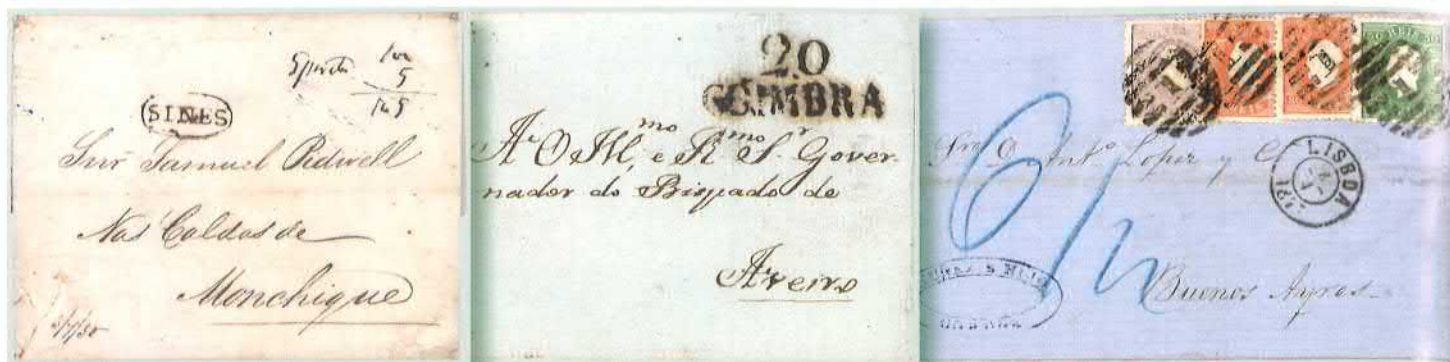 100
5
SINES
Snr Samuel Bidwell
Nas Caldas de
Monchique
20
COIMBRA
Ao Illmo e Rmo Sr Gover-
nador do Bispado de
Aveiro
REIS 50
1
1
1
1
Anto Lopez y Ca
LISBOA
6/2
Buenos Ayres